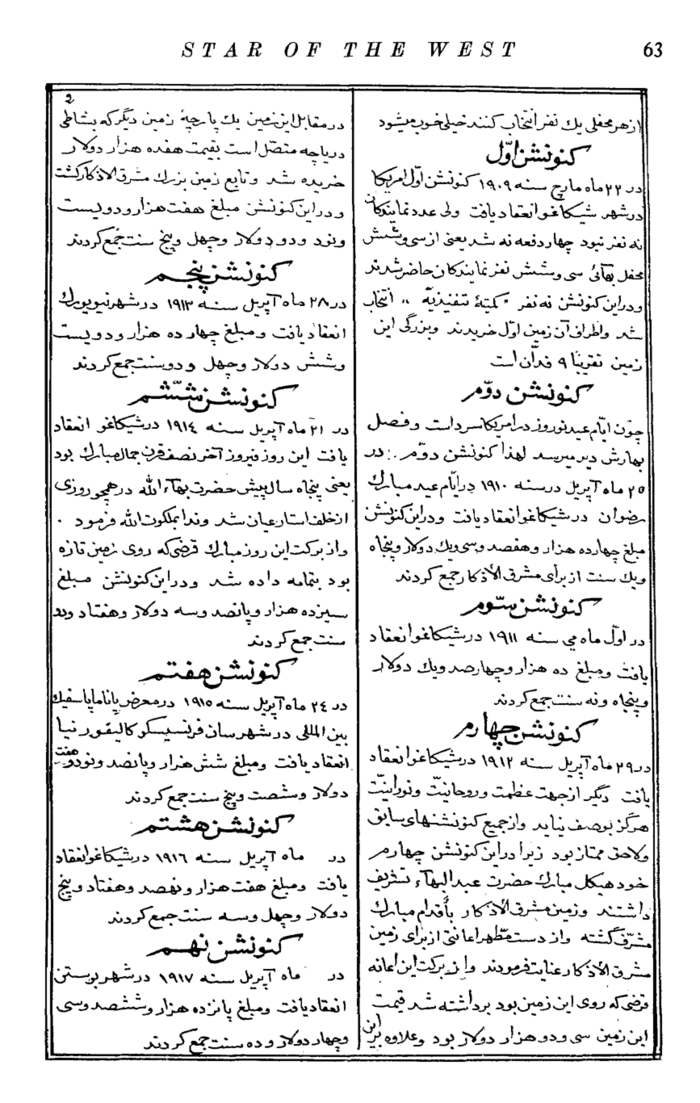 STAR OF THE WEST 63
از هر محفلی یك نفر انتخاب کنند خیلی خوب میشود
کنونشن اوّل
در ۲۲ ماه مارچ سنه ۱۹۰۹ کنونشن اوّل امریکا
در شهر شیکاغو انعقاد یافت ولی عدد نمایندکان
نه نفر نبود چهار دفعه نه شد یعنی از سی و شش
محفل بهائی سی و شش نفر نمایندکان حاضر شدند
و در این کنونشن نه نفر "کمیتهٔ تنفیذیّه" انتخاب
شد و اطراف آن زمین اوّل خریدند و بزرگی این
زمین تقریبًا ۹ فدّان است
کنونشن دوّم
چون ایّام عید نوروز در امریکا سرد است و فصل
بهارش دیر میرسد لهذا کنونشن دوّم در
۲۵ ماه آپریل در سنه ۱۹۱۰ در ایّام عید مبارك
رضوان در شیکاغو انعقاد یافت و در این کنونشن
مبلغ چهارده هزار و هفصد و سی و یك دولار و پنجاه
و یك سنت از برای مشرق الأذکار جمع کردند
کنونشن سوّم
در اوّل ماه می سنه ۱۹۱۱ در شیکاغو انعقاد
یافت و مبلغ ده هزار و چهار صد و یك دولار
و پنجاه و نه سنت جمع کردند
کنونشن چهارم
در ۲۹ ماه آپریل سنه ۱۹۱۲ در شیکاغو انعقاد
یافت دیگر از جهت عظمت و روحانیّت و نورانیّت
هرگز بوصف نیاید و از جمیع کنونشنهای سابق
و لاحق ممتاز بود زیرا در این کنونشن چهارم
خود هیکل مبارك حضرت عبد البهآء تشریف
داشتند و زمین مشرق الاذکار بأقدام مبارك
مشرّف گشته و از دست مطهر اعانتی از برای زمین
مشرق الأذکار عنایت فرمودند و از برکت این اعانه
قرضی که روی این زمین بود برداشته شد قیمت
این زمین سی و دو هزار دولار بود و علاوه بر این
2
در مقابل این زمین یك پارچهٔ زمین دیگر که بشاطی
دریاچه متّصل است بقیمت هفده هزار دولار
خریده شد و تابع زمین بزرك مشرق الاذکار گشت
و در این کنونشن مبلغ هفت هزار و دویست
و نود و دو دولار و چهل و پنج سنت جمع کردند
کنونشن پنجم
در ۲۸ ماه آپریل سنه ۱۹۱۳ در شهر نیویورك
انعقاد یافت و مبلغ چهار ده هزار و دویست
و شش دولار و چهل و دو سنت جمع کردند
کنونشن ششم
در ۲۱ ماه آپریل سنه ۱۹۱٤ در شیکاغو انعقاد
یافت این روز فیروز آخر نصف قرن جمال مبارك بود
یعنی پنجاه سال پیش حضرت بهآء الله در همچو روزی
از خلف استار عیان شد و ندا بملکوت الله فرمود ٠
و از برکت این روز مبارك قرضی که روی زمین تازه
بود بتمامه داده شد و در این کنونشن مبلغ
سیزده هزار و پانصد و سه دولار و هفتاد و دو
سنت جمع کردند
کنونشن هفتم
در ۲٤ ماه آپریل سنه ۱۹۱٥ در معرض پاناما پاسفیك
بین المللی در شهر سان فرنسیسکو کالیفورنیا
انعقاد یافت و مبلغ شش هزار و پانصد و نود و هفت
دولار و شصت و پنج سنت جمع کردند
کنونشن هشتم
در ماه آپریل سنه ۱۹۱٦ در شیکاغو انعقاد
یافت و مبلغ هفت هزار و نهصد و هفتاد و پنج
دولار و چهل و سه سنت جمع کردند
کنونشن نهم
در ماه آپریل سنه ۱۹۱۷ در شهر بوستن
انعقاد یافت و مبلغ پانزده هزار و ششصد و سی
و چهار دولار و ده سنت جمع کردند